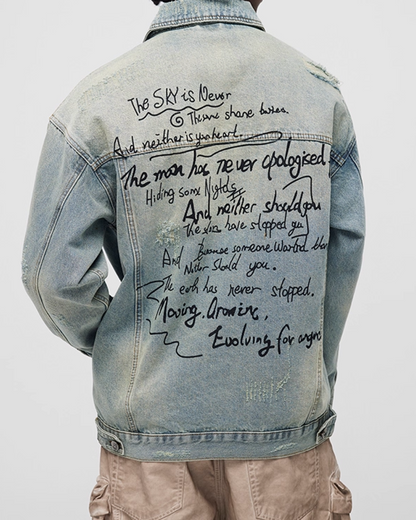 The SKY is Never
The same shane twice.
And neither is your heart.
The man has never apologised
Hiding some Nights
And neither should you
The stars have stopped
And someone Wanted them
Neither Should you.
The earth has never stopped.
Moving. Growing,
Evolving for anyone